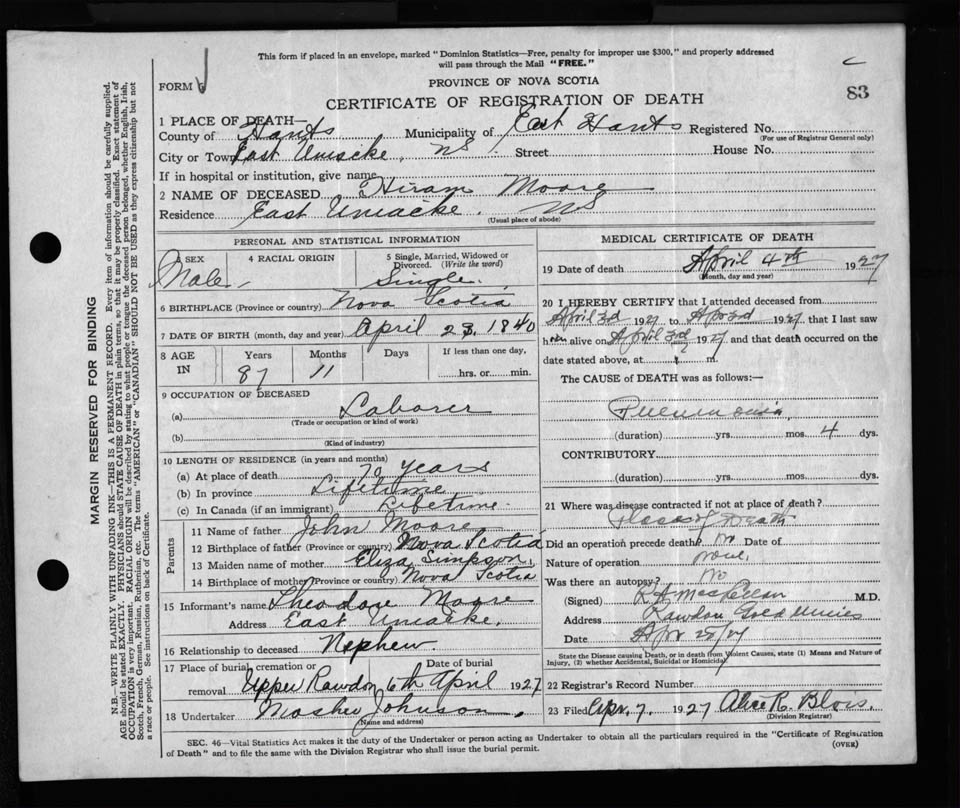 This form if placed in an envelope, marked "Dominion Statistics—Free, penalty for improper use $300," and properly addressed
will pass through the Mail "FREE."
PROVINCE OF NOVA SCOTIA
FORM
CERTIFICATE OF REGISTRATION OF DEATH
83
1 PLACE OF DEATH—
County of Hants Municipality of East Hants Registered No.
(For use of Registrar General only)
City or Town East Uniacke, NS. Street House No.
If in hospital or institution, give name
2 NAME OF DECEASED Hiram Moore
Residence East Uniacke. NS
(Usual place of abode)
PERSONAL AND STATISTICAL INFORMATION
3 SEX 4 RACIAL ORIGIN 5 Single, Married, Widowed or Divorced. (Write the word)
Male Single
6 BIRTHPLACE (Province or country) Nova Scotia
7 DATE OF BIRTH (month, day and year) April 23, 1840
8 AGE IN Years Months Days If less than one day,
87 11 hrs. or min.
9 OCCUPATION OF DECEASED
(a) Laborer
(Trade or occupation or kind of work)
(b)
(Kind of industry)
10 LENGTH OF RESIDENCE (in years and months)
(a) At place of death 70 years
(b) In province Lifetime
(c) In Canada (if an immigrant) Lifetime
Parents
11 Name of father John Moore
12 Birthplace of father (Province or country) Nova Scotia
13 Maiden name of mother Eliza Simpson
14 Birthplace of mother (Province or country) Nova Scotia
15 Informant's name Theodore Moore
Address East Uniacke.
16 Relationship to deceased Nephew
17 Place of burial, cremation or removal Date of burial
Upper Rawdon 6th April 1927
18 Undertaker Johnson
(Name and address)
MEDICAL CERTIFICATE OF DEATH
19 Date of death April 4th 1927
(Month, day and year)
20 I HEREBY CERTIFY that I attended deceased from
April 3d 1927 to Apr 3rd 1927, that I last saw
h him alive on April 3rd 1927 and that death occurred on the
date stated above, at m.
The CAUSE of DEATH was as follows:—
Pneumonia
(duration) yrs. mos. 4 dys.
CONTRIBUTORY
(duration) yrs. mos. dys.
21 Where was disease contracted if not at place of death?
Place of Death
Did an operation precede death? No Date of
Nature of operation none
Was there an autopsy? No
(Signed) M.D.
Address Rawdon Gold Mines
Date
State the Disease causing Death, or in death from Violent Causes, state (1) Means and Nature of
Injury, (2) whether Accidental, Suicidal or Homicidal
22 Registrar's Record Number
23 Filed Apr. 7, 1927 Alice R. Blois.
(Division Registrar)
SEC. 46—Vital Statistics Act makes it the duty of the Undertaker or person acting as Undertaker to obtain all the particulars required in the "Certificate of Registration
of Death" and to file the same with the Division Registrar who shall issue the burial permit.
(OVER)
MARGIN RESERVED FOR BINDING
N.B.—WRITE PLAINLY WITH UNFADING INK—THIS IS A PERMANENT RECORD. Every item of information should be carefully supplied.
AGE should be stated EXACTLY. PHYSICIANS should STATE CAUSE OF DEATH in plain terms, so that it may be properly classified. Exact statement of
OCCUPATION is very important. RACIAL ORIGIN will be described by stating to what people or tongue the deceased person belonged, whether English, Irish,
Scotch, French, German, Russian, Ruthenian, etc. The terms "AMERICAN" or "CANADIAN" SHOULD NOT BE USED as they express citizenship but not
a race or people. See instructions on back of Certificate.